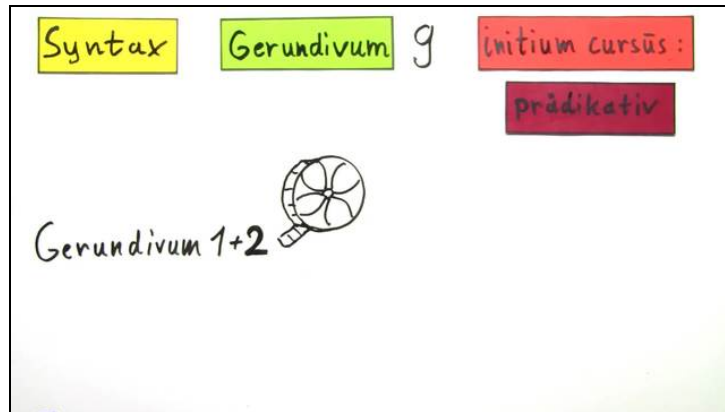 Syntax Gerundivum g initium cursūs:
prädikativ
Gerundivum 1+2